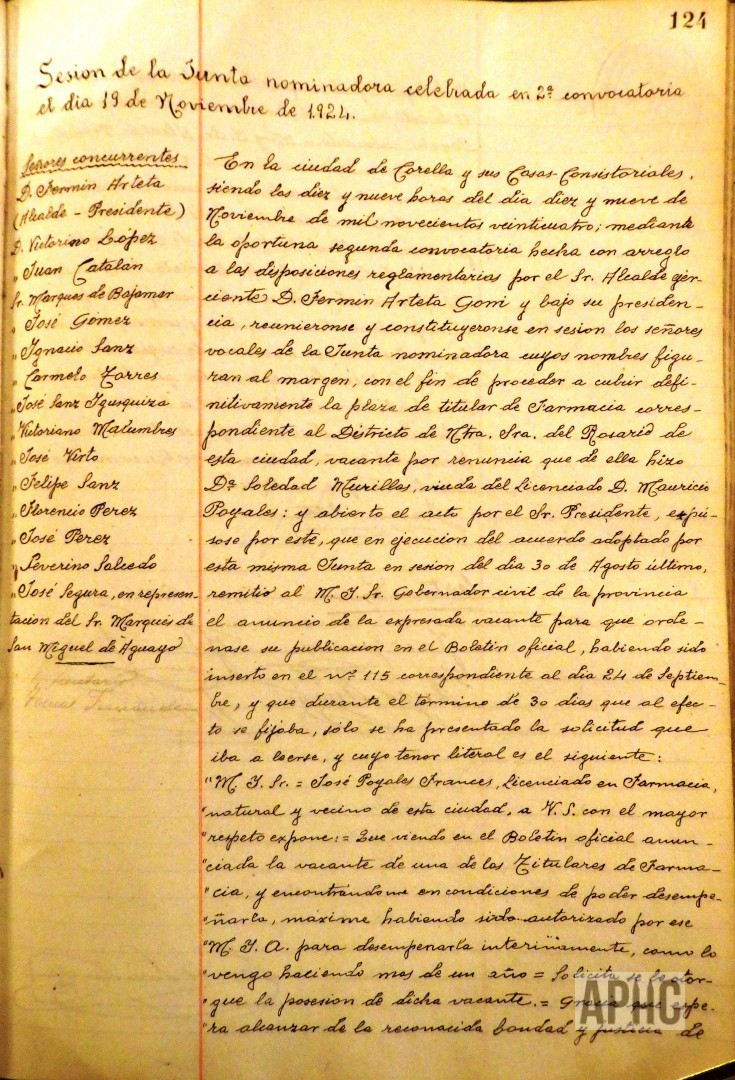 124
Sesion de la Junta nominadora celebrada en 2ª convocatoria
el dia 19 de Noviembre de 1.924.
Señores concurrentes
D. Fermin Arteta
(Alcalde - Presidente)
D. Victorino López
„ Juan Catalán
Sr. Marques de Bajamar
„ José Gomez
„ Ignacio Sanz
„ Carmelo Torres
„ José Sanz Igusquiza
„ Victoriano Malumbres
„ José Virto
„ Felipe Sanz
„ Florencio Perez
„ José Perez
„ Severino Salcedo
„ José Segura, en represen-
tacion del Sr. Marqués de
San Miguel de Aguayo
Secretario
En la ciudad de Corella y sus Casas Consistoriales,
siendo las diez y nueve horas del dia diez y nueve de
Noviembre de mil novecientos veinticuatro; mediante
la oportuna segunda convocatoria hecha con arreglo
a las disposiciones reglamentarias por el Sr. Alcalde ejer-
ciente D. Fermin Arteta Goñi y bajo su presiden-
cia, reunieronse y constituyeronse en sesion los señores
vocales de la Junta nominadora cuyos nombres figu-
ran al margen, con el fin de proceder a cubrir defi-
nitivamente la plaza de titular de Farmacia corres-
pondiente al Districto de Ntra. Sra. del Rosario de
esta ciudad, vacante por renuncia que de ella hizo
Dª Soledad Murillas, viuda del Licenciado D. Mauricio
Poyales: y abierto el acto por el Sr. Presidente, expú-
sose por éste, que en ejecucion del acuerdo adoptado por
esta misma Junta en sesion del dia 30 de Agosto último,
remitió al M. I. Sr. Gobernador civil de la provincia
el anuncio de la expresada vacante para que orde-
nase su publicacion en el Boletin oficial, habiendo sido
inserto en el nº 115 correspondiente al dia 24 de Septiem-
bre, y que durante el término de 30 dias que al efec-
to se fijaba, sólo se ha presentado la solicitud que
iba a leerse, y cuyo tenor literal es el siguiente:
"M. I. Sr. = José Poyales Frances, Licenciado en Farmacia,
"natural y vecino de esta ciudad, a V. S. con el mayor
"respeto expone: = Que viendo en el Boletin oficial anun-
"ciada la vacante de una de las Titulares de Farma-
"cia, y encontrándome en condiciones de poder desempe-
"ñarla, máxime habiendo sido autorizado por ese
"M. I. A. para desempeñarla interinamente, como lo
"vengo haciendo mas de un año = Solicita se le otor-
"gue la posesion de dicha vacante. = Gracia que espe-
"ra alcanzar de la reconocida bondad y justicia de
APHC